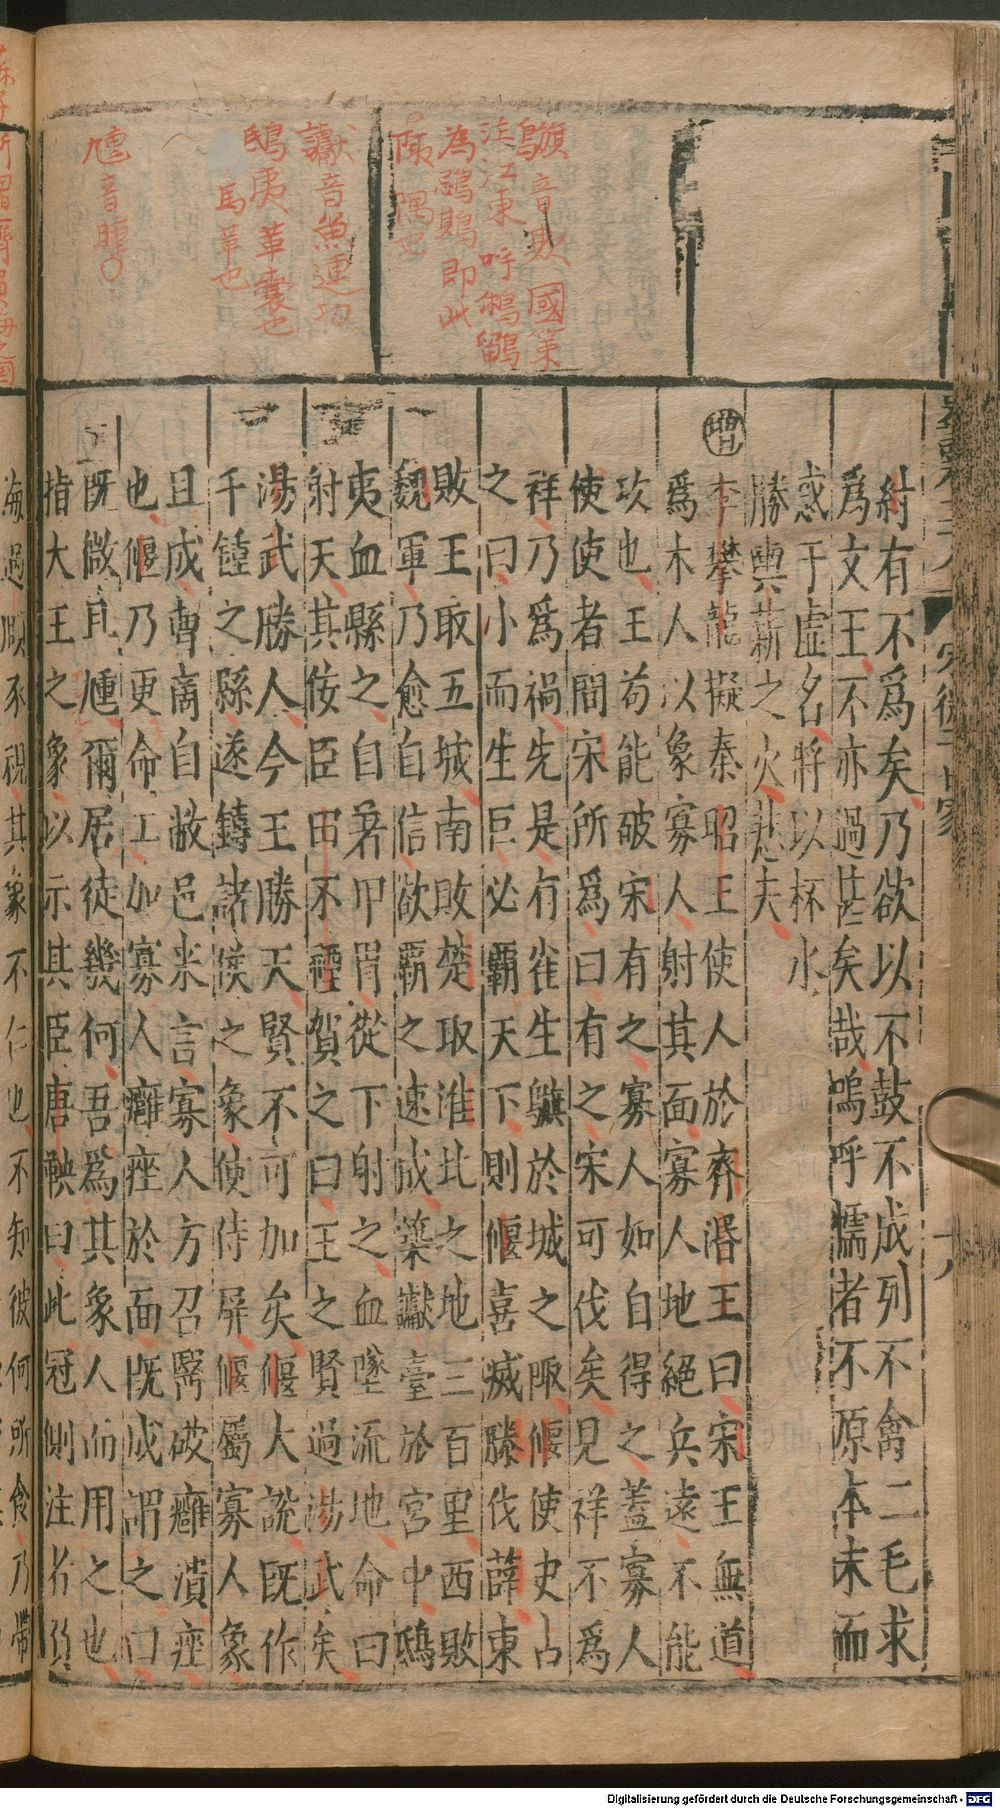 紂有不爲矣乃欲以不鼓不成列不禽二毛求
爲文王不亦過甚矣哉嗚呼儒者不原本末而
惑于虛名將以杯水
勝輿薪之火悲夫
增
李攀龍擬秦昭王使人於齊湣王曰宋王無道
爲木人以象寡人射其面寡人地絕兵遠不能
攻也王苟能破宋有之寡人如自得之蓋寡人
使使者間宋所爲曰有之宋可伐矣見祥不爲
祥乃爲禍先是有雀生䲔於城之陬偃使史占
之曰小而生巨必霸天下則偃喜滅滕伐薛東
敗王取五城南敗楚取淮北之地三百里西敗
魏軍乃愈自信欲霸之速成築钀臺於宮中鴟
夷血縣之自著甲胄從下射之血墜流地命曰
射天其侫臣田不禋賀之曰王之賢過湯武矣
湯武勝人今王勝天賢不可加矣偃大說既作
千鍾之縣遂鑄諸侯之象使侍屏偃屬寡人象
且成曹商自敝邑来言寡人方召醫破癰潰痤
也偃乃更命工加寡人癰痤於面既成謂之曰
既微且尰爾居徒幾何吾爲其象人而用之也
指大王之象以示其臣唐鞅曰此冠側注者
䲔音欺國策
注江東呼鵂鶹
為鵋䳢即此
陬隅也
钀音魚連切
鴟夷革囊也
馬革也
尰音腫
海過頤豕視其象不仁也不知彼何所食乃帶
宋微子世家
十八
Digitalisierung gefördert durch die Deutsche Forschungsgemeinschaft - DFG